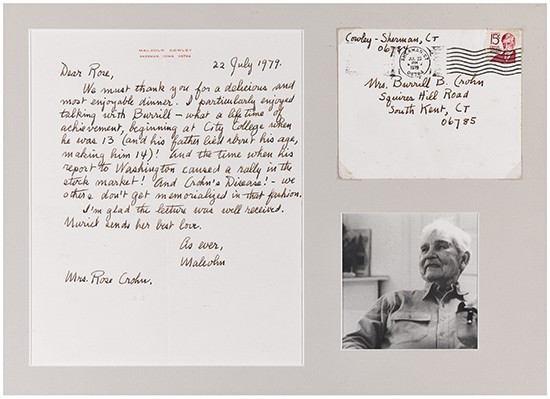 MALCOLM COWLEY
22 July 1979.
Dear Rose,
We must thank you for a delicious and
most enjoyable dinner. I particularly enjoyed
talking with Burrill — what a lifetime of
achievement, beginning at City College when
he was 13 (and his father lied about his age,
making him 14)! And the time when his
report to Washington caused a rally in the
stock market! And Crohn's Disease! — we
others don't get memorialized in that fashion.
I'm glad the lecture was well received.
Muriel sends her best love.
As ever,
Malcolm
Mrs. Rose Crohn.
Cowley - Sherman, CT
06784
15c
SHERMAN, CT
JUL 23
1979
06784
Mrs. Burrill B. Crohn
Squires Hill Road
South Kent, CT
06785